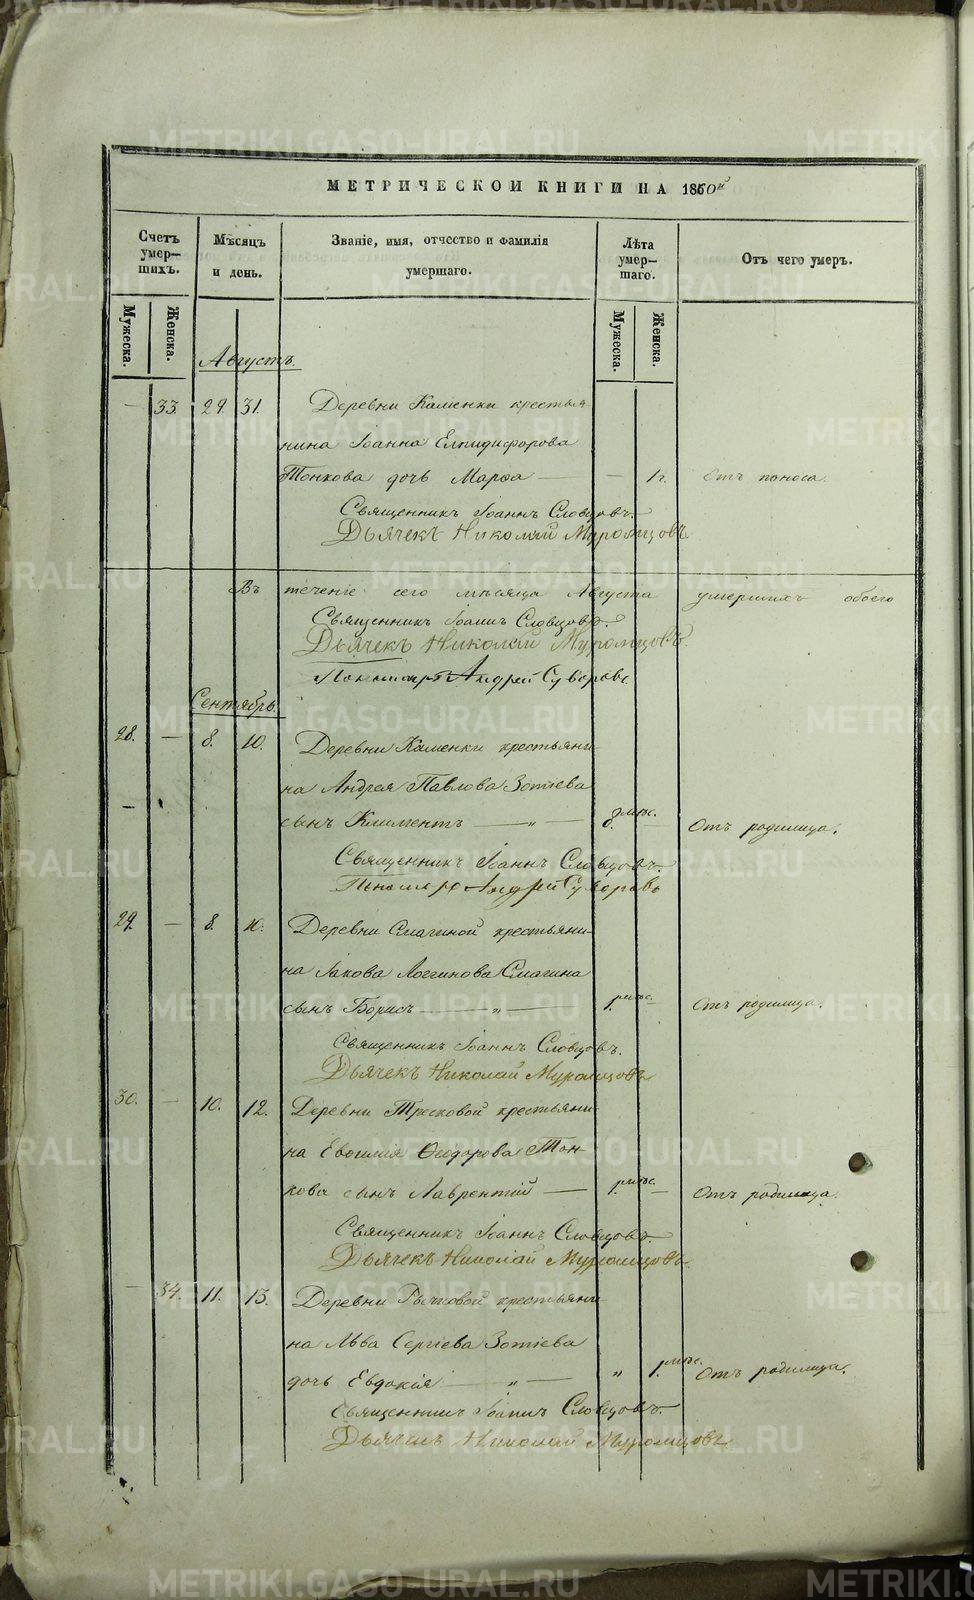 МЕТРИЧЕСКОЙ КНИГИ НА 1860й
Счетъ умер-
шихъ.
Мужеска.
Женска.
Мѣсяцъ
и день.
Званіе, имя, отчество и фамилія
умершаго.
Лѣта
умер-
шаго.
Мужеска.
Женска.
Отъ чего умеръ.
Августъ.
— 33. 29. 31. Деревни Каменки крестья
нина Іоанна Елпидифорова
Тонкова дочь Марѳа — — 1 г. Отъ поноса.
Священникъ Іоаннъ Словцовъ.
Дьячекъ Николай Муромцовъ.
Въ теченіе сего мѣсяца Августа умершихъ обоего
Священникъ Іоаннъ Словцовъ.
Дьячекъ Николай Муромцовъ.
Пономарь Андрей Суворовъ
Сентябрь.
28. — 8. 10. Деревни Каменки крестьяни-
на Андрея Павлова Зотіева
сынъ Климентъ — „ — мѣс. — Отъ родимца.
Священникъ Іоаннъ Словцовъ.
Пономарь Андрей Суворовъ
29. — 8. 10. Деревни Смагиной крестьяни-
на Іакова Логгинова Смагина
сынъ Борисъ — „ — 1. мѣс. — Отъ родимца.
Священникъ Іоаннъ Словцовъ.
Дьячекъ Николай Муромцовъ
30. — 10. 12. Деревни Тресковой крестьяни-
на Евѳимія Ѳеодорова Тон-
кова сынъ Лаврентій — 1. мѣс. — Отъ родимца.
Священникъ Іоаннъ Словцовъ.
Дьячекъ Николай Муромцовъ.
— 34. 11. 13. Деревни Рычковой крестьяни-
на Льва Сергіева Зотіева
дочь Евдокія — „ — „ 1. мѣс. Отъ родимца.
Священникъ Іоаннъ Словцовъ.
Дьячекъ Николай Муромцовъ
METRIKI.GASO-URAL.RU